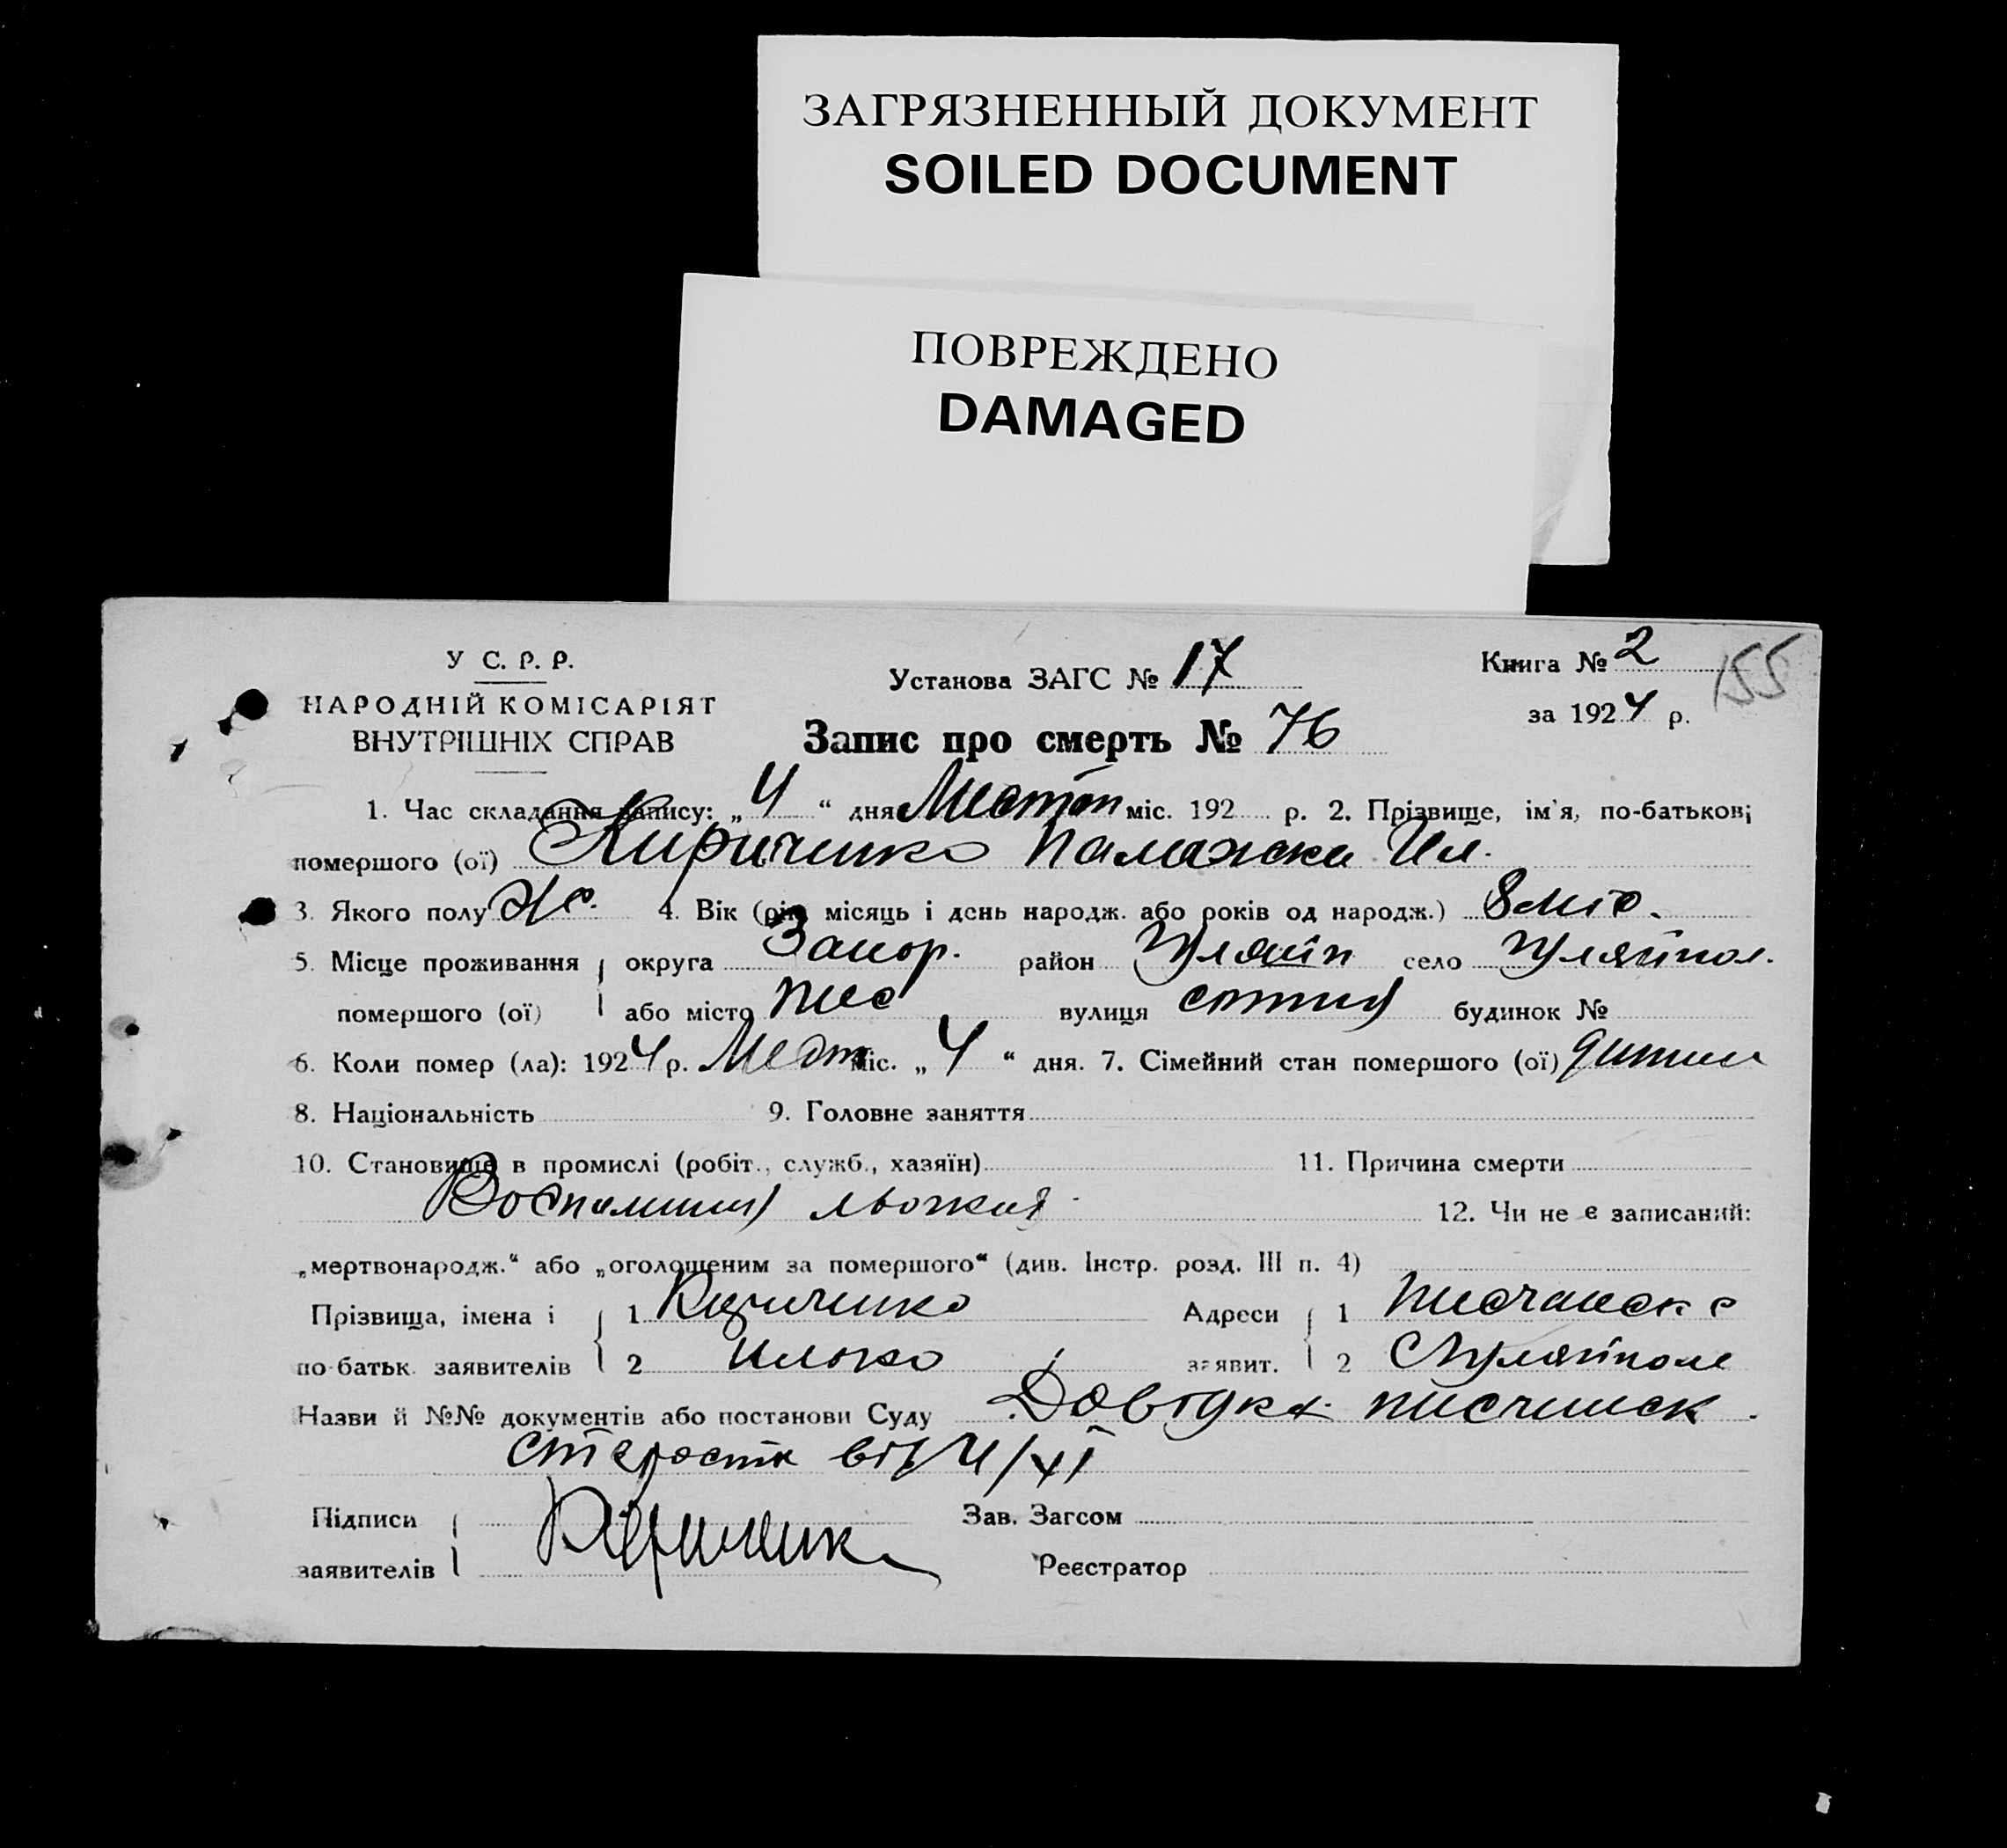 ЗАГРЯЗНЕННЫЙ ДОКУМЕНТ
SOILED DOCUMENT
ПОВРЕЖДЕНО
DAMAGED
У С. Р. Р.
НАРОДНІЙ КОМІСАРІЯТ
ВНУТРІШНІХ СПРАВ
Установа ЗАГС № 17
Книга № 2
155
за 1924 р.
Запис про смерть № 76
1. Час складання запису: „4“ дня міс. 192 р. 2. Прізвище, ім'я, по-батькові
помершого (ої) Кириченко Палажка Ил.
3. Якого полу Ж. 4. Вік (рік, місяць і день народж. або років од народж.) 8 міс.
5. Місце проживання округа Запор. район Гуляйп село Гуляйпол.
помершого (ої) або місто вулиця сотня будинок №
6. Коли помер (ла): 1924 р. міс. „4“ дня. 7. Сімейний стан помершого (ої) дитина
8. Національність 9. Головне заняття
10. Становище в промислі (робіт., служб., хазяїн) 11. Причина смерти
12. Чи не є записаний:
„мертвонародж.“ або „оголошеним за помершого“ (див. Інстр. розд. III п. 4)
Прізвища, імена і 1 Кириченко Адреси 1
по-батьк. заявителів 2 Илько заявит. 2 Гуляйполе
Назви й №№ документів або постанови Суду Довідка
від 4/XI
Підписи Зав. Загсом
заявителів Реєстратор